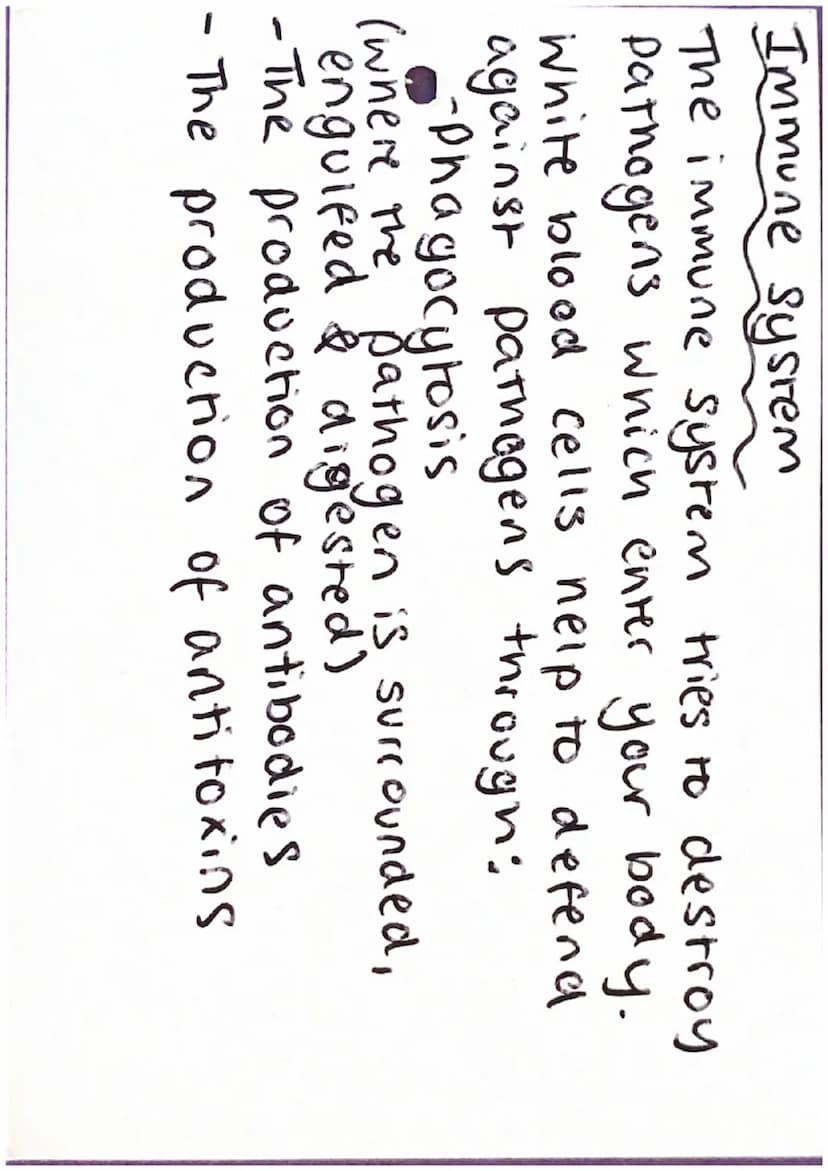 Immune system
The immune system tries to destroy
pathogens which enter your body.
White blood cells help to defend
against pathogens through:
- Phagocytosis
(where the pathogen is surrounded,
engulfed & digested)
- The production of antibodies
- The production of antitoxins